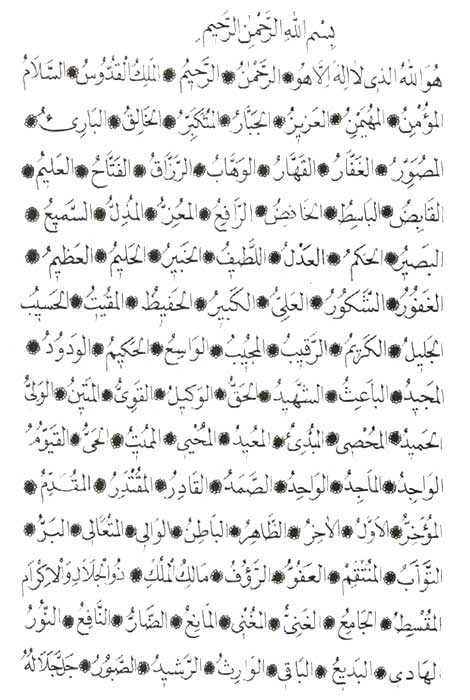 بِسْمِ اللهِ الرَّحْمٰنِ الرَّحِيمِ
هُوَ اللهُ الذى لا اله الا هو ❁ الرَّحْمٰنُ ❁ الرَّحِيمُ ❁ المَلِكُ القُدُّوسُ ❁ السَّلَامُ
المُؤْمِنُ ❁ المُهَيْمِنُ ❁ العَزِيزُ ❁ الجَبَّارُ ❁ المُتَكَبِّرُ ❁ الخَالِقُ ❁ البَارِئُ ❁
المُصَوِّرُ ❁ الغَفَّارُ ❁ القَهَّارُ ❁ الوَهَّابُ ❁ الرَّزَّاقُ ❁ الفَتَّاحُ ❁ العَلِيمُ ❁
القَابِضُ ❁ البَاسِطُ ❁ الخَافِضُ ❁ الرَّافِعُ ❁ المُعِزُّ ❁ المُذِلُّ ❁ السَّمِيعُ ❁
البَصِيرُ ❁ الحَكَمُ ❁ العَدْلُ ❁ اللَّطِيفُ ❁ الخَبِيرُ ❁ الحَلِيمُ ❁ العَظِيمُ ❁
الغَفُورُ ❁ الشَّكُورُ ❁ العَلِىُّ ❁ الكَبِيرُ ❁ الحَفِيظُ ❁ المُقِيتُ ❁ الحَسِيبُ
الجَلِيلُ ❁ الكَرِيمُ ❁ الرَّقِيبُ ❁ المُجِيبُ ❁ الوَاسِعُ ❁ الحَكِيمُ ❁ الوَدُودُ ❁
المَجِيدُ ❁ البَاعِثُ ❁ الشَّهِيدُ ❁ الحَقُّ ❁ الوَكِيلُ ❁ القَوِىُّ ❁ المَتِينُ ❁ الوَلِىُّ
الحَمِيدُ ❁ المُحْصِى ❁ المُبْدِئُ ❁ المُعِيدُ ❁ المُحْيِى ❁ المُمِيتُ ❁ الحَىُّ ❁ القَيُّومُ
الوَاجِدُ ❁ المَاجِدُ ❁ الوَاحِدُ ❁ الصَّمَدُ ❁ القَادِرُ ❁ المُقْتَدِرُ ❁ المُقَدِّمُ ❁
المُؤَخِّرُ ❁ الاَوَّلُ ❁ الاٰخِرُ ❁ الظَّاهِرُ ❁ البَاطِنُ ❁ الوَالِى ❁ المُتَعَالِى ❁ البَرُّ ❁
التَّوَّابُ ❁ المُنْتَقِمُ ❁ العَفُوُّ ❁ الرَّؤُفُ ❁ مَالِكُ المُلْكِ ❁ ذُو الجَلَالِ وَالاِكْرَامِ
المُقْسِطُ ❁ الجَامِعُ ❁ الغَنِىُّ ❁ المُغْنِى ❁ المَانِعُ ❁ الضَّارُّ ❁ النَّافِعُ ❁ النُّورُ
الهَادِى ❁ البَدِيعُ ❁ البَاقِى ❁ الوَارِثُ ❁ الرَّشِيدُ ❁ الصَّبُورُ ❁ جَلَّ جَلَالُهُ